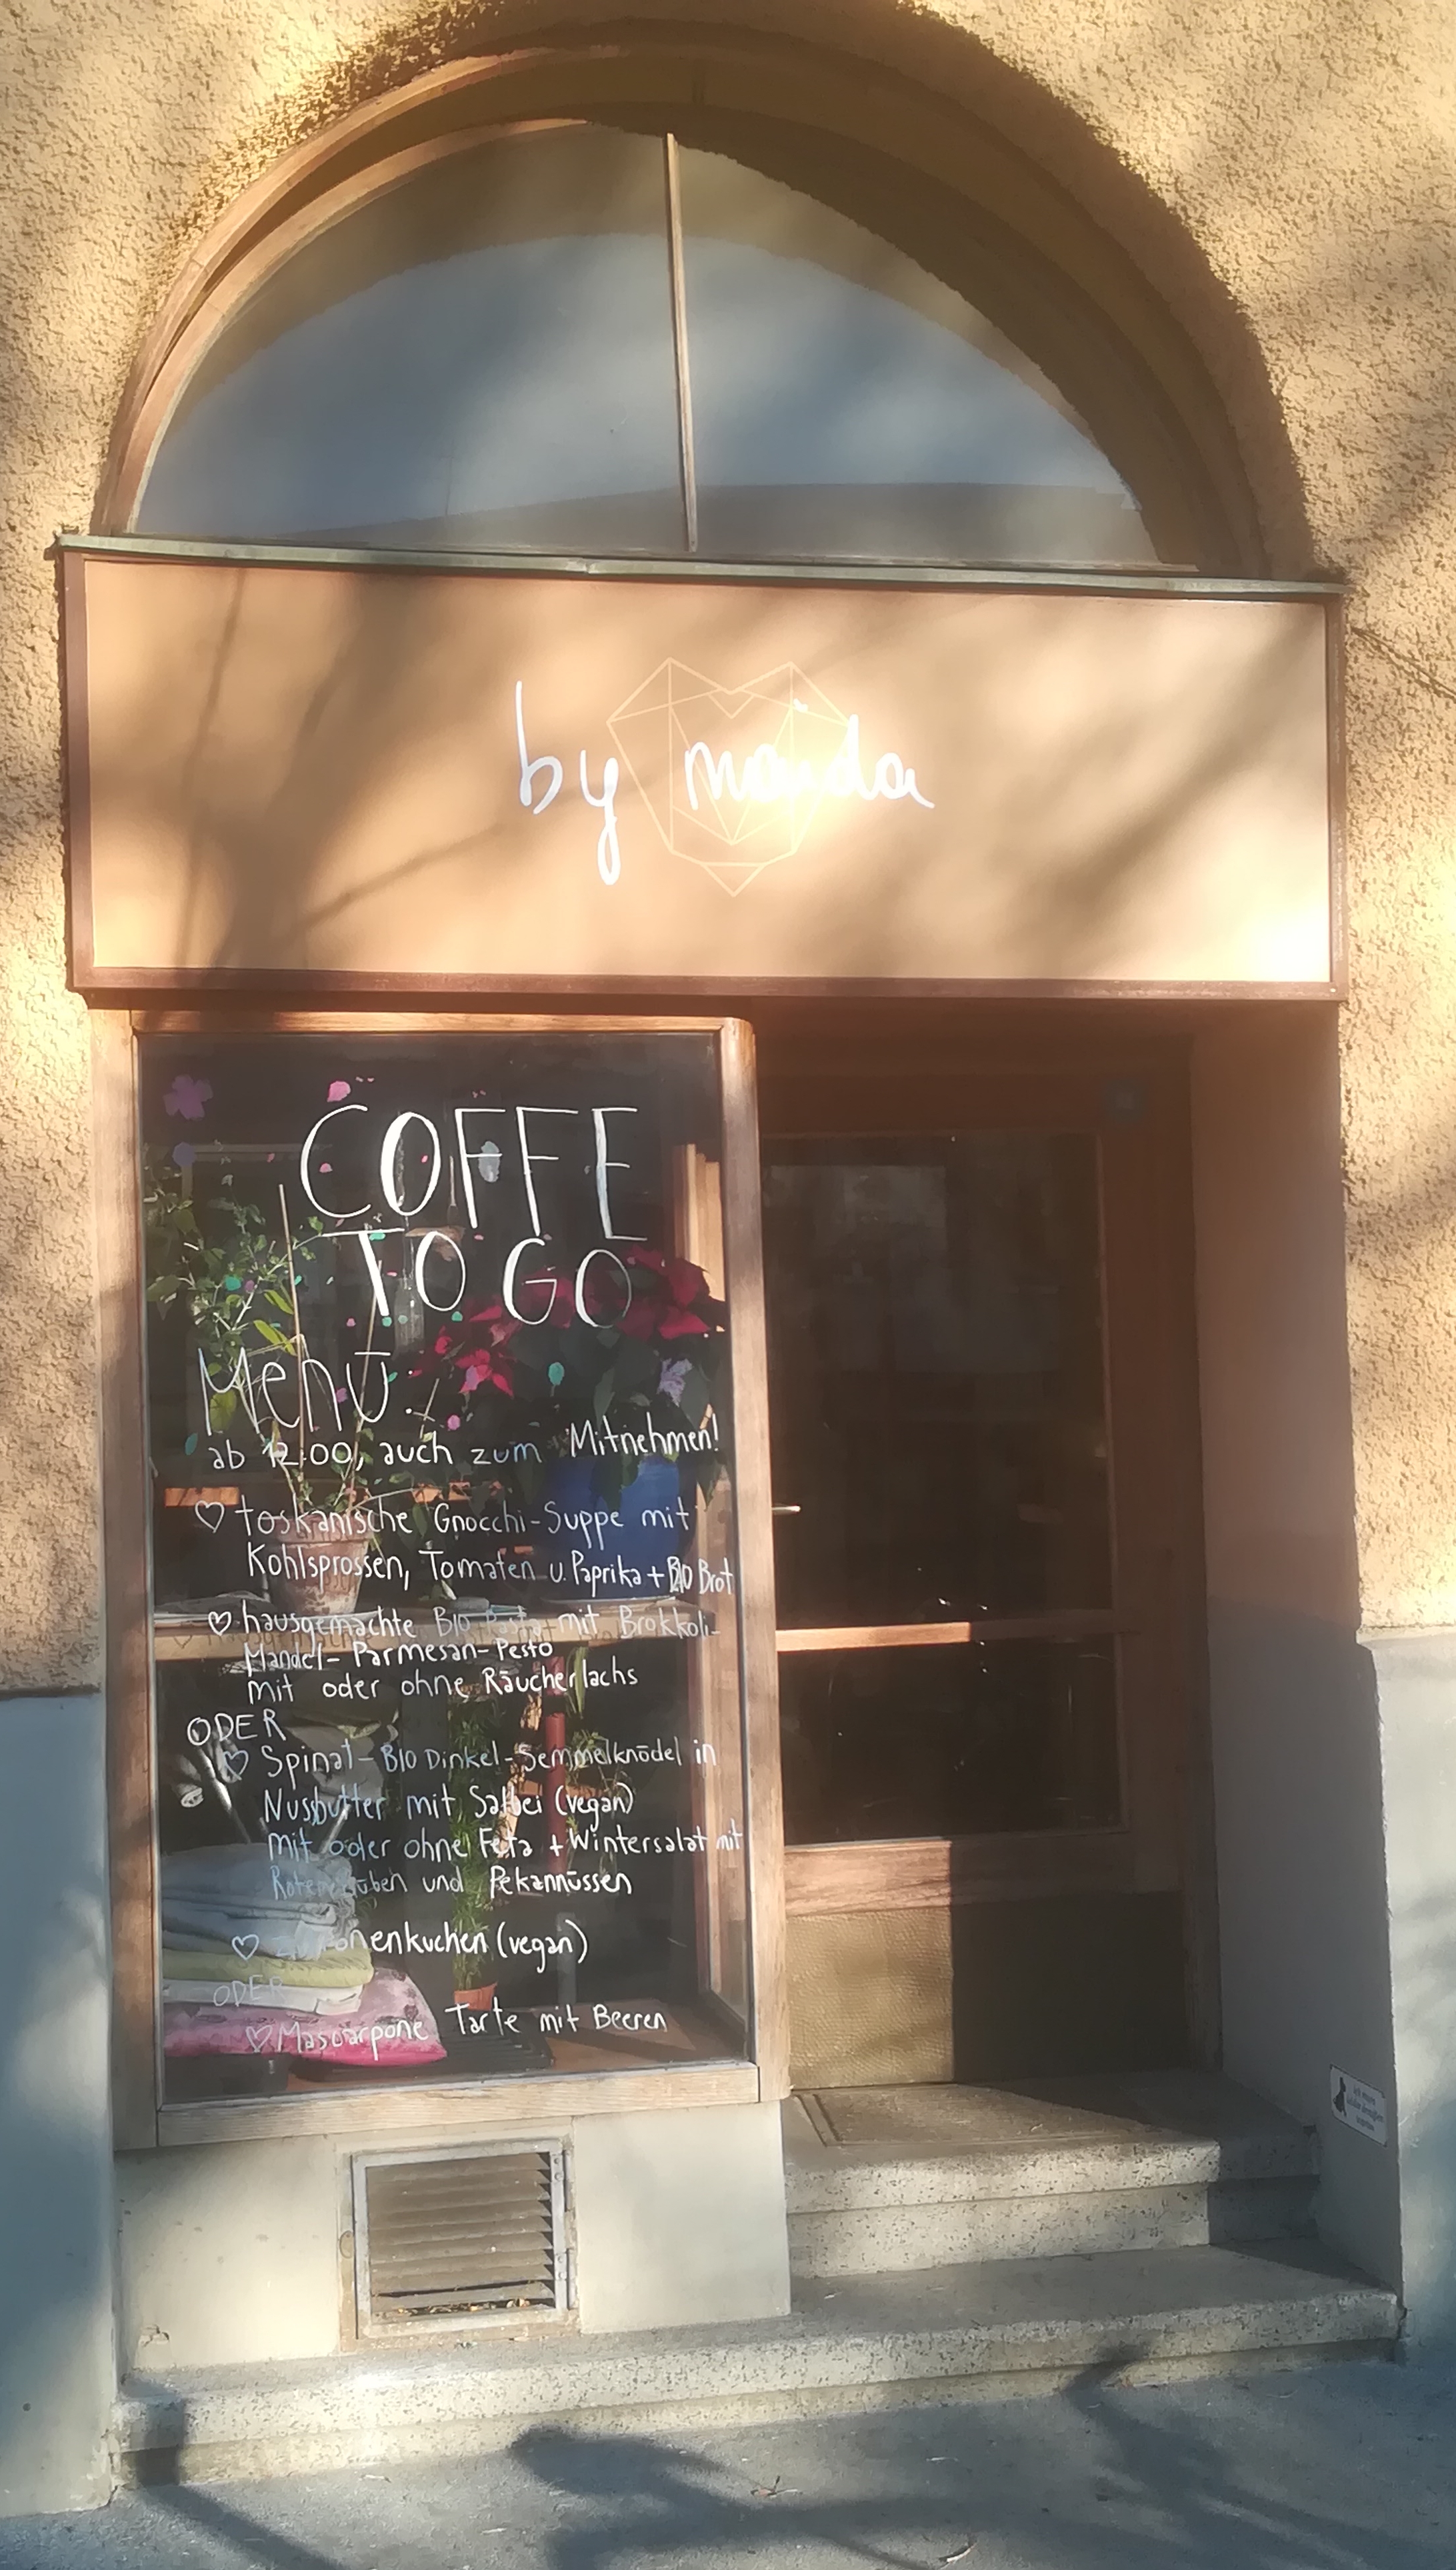 by maida
COFFE
TO GO
Menü:
ab 12:00, auch zum Mitnehmen!
toskanische Gnocchi-Suppe mit
Kohlsprossen, Tomaten u. Paprika + BIO Brot
hausgemachte BIO Pasta mit Brokkoli-
Mandel-Parmesan-Pesto
mit oder ohne Räucherlachs
ODER
Spinat-BIO Dinkel-Semmelknödel in
Nussbutter mit Salbei (vegan)
mit oder ohne Feta + Wintersalat mit
Roten Rüben und Pekannüssen
Zitronenkuchen (vegan)
ODER
Mascarpone Tarte mit Beeren